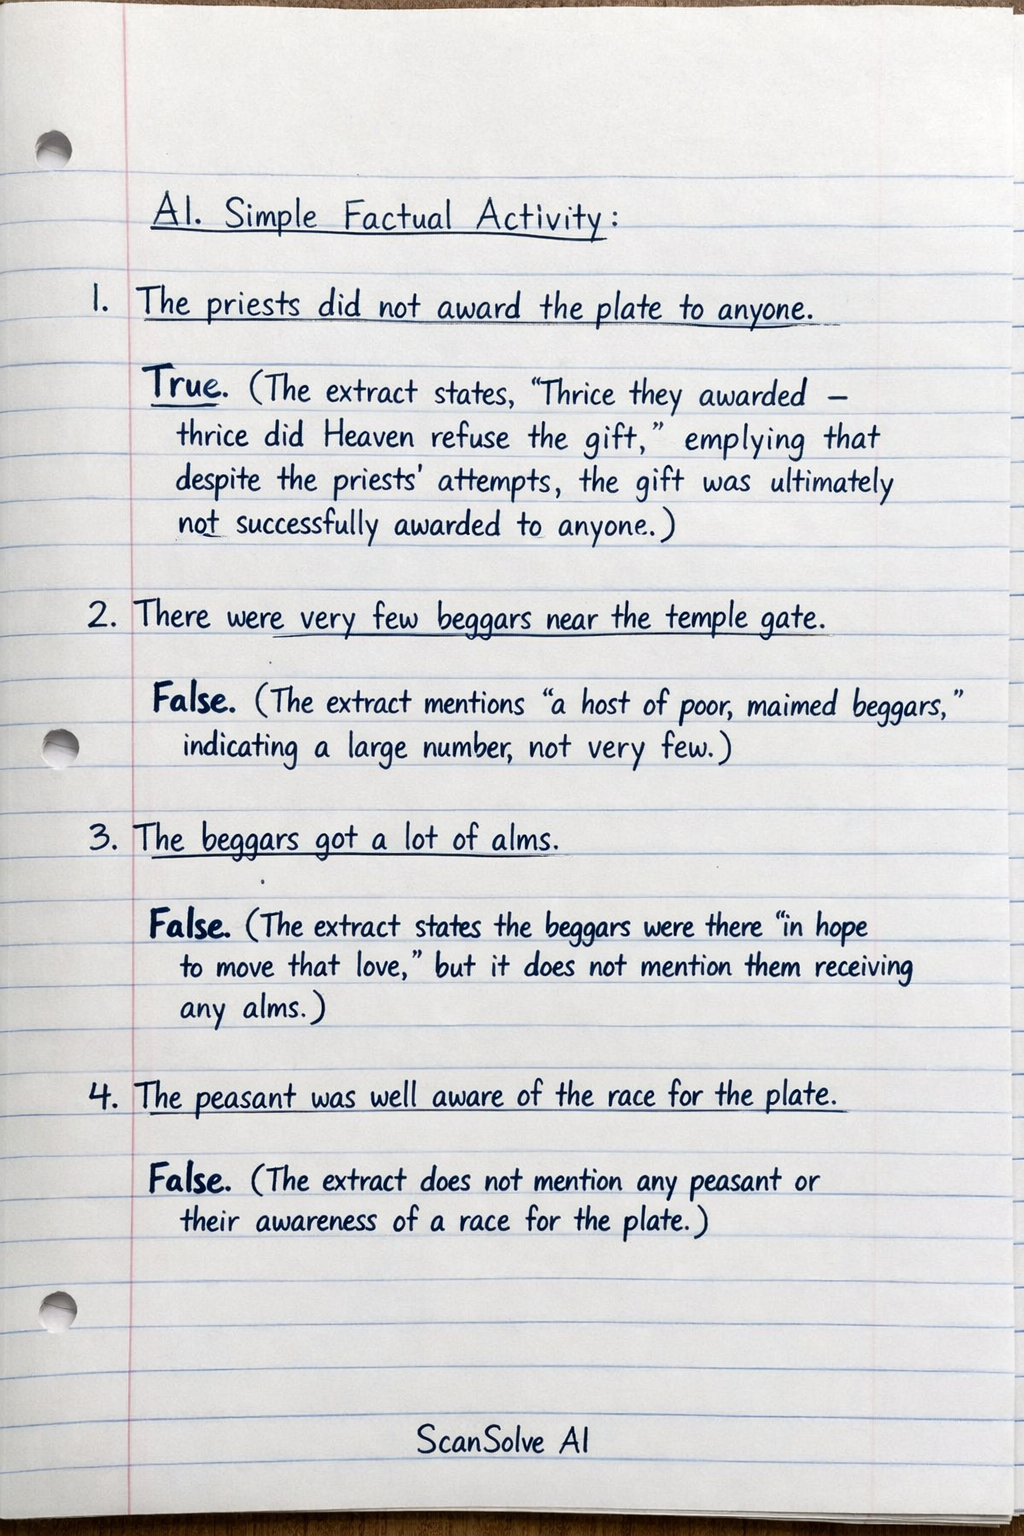 A1. Simple Factual Activity:
1. The priests did not award the plate to anyone.
True. (The extract states, “Thrice they awarded –
thrice did Heaven refuse the gift,” emplying that
despite the priests' attempts, the gift was ultimately
not successfully awarded to anyone.)
2. There were very few beggars near the temple gate.
False. (The extract mentions “a host of poor, maimed beggars,”
indicating a large number, not very few.)
3. The beggars got a lot of alms.
False. (The extract states the beggars were there “in hope
to move that love,” but it does not mention them receiving
any alms.)
4. The peasant was well aware of the race for the plate.
False. (The extract does not mention any peasant or
their awareness of a race for the plate.)
ScanSolve AI